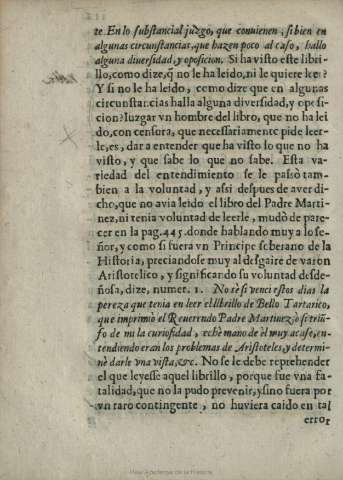 te. En lo substancial juzgo, que conuienen, si bien en
algunas circunstancias, que hazen poco al caso, hallo
alguna diuersidad, y oposicion. Si ha visto este libri-
llo, como dize, q̃ no le ha leido, ni le quiere leer?
Y si no le ha leido, como dize que en algunas
circunstancias halla alguna diversidad, y oposi-
cion? Iuzgar vn hombre del libro, que no ha lei
do, con censura, que necessariamente pide leer-
le, es, dar a entender que ha visto lo que no ha
visto, y que sabe lo que no sabe. Esta va-
riedad del entendimiento se le passò tam-
bien a la voluntad, y assi despues de aver di-
cho, que no avia leido el libro del Padre Marti-
nez, ni tenia voluntad de leerle, mudò de pare-
cer en la pag. 445. donde hablando muy a lo se-
ñor, y como si fuera vn Principe soberano de la
Historia, preciandose muy al desgaire de varon
Aristotelico, y significando su voluntad desde-
ñosa, dize, numer. 1. No sè si venci estos dias la
pereza que tenia en leer el librillo de Bello Tartarico,
que imprimiò el Reuerendo Padre Martinez, ò si triũ-
fo de mi la curiosidad, echè mano de èl muy acaso, en-
tendiendo eran los problemas de Aristoteles, y determi-
nè darle vna vista, &c. No se le debe reprehender
el que leyesse aquel librillo, porque fue vna fa-
talidad, que no la pudo prevenir, y sino fuera por
vn raro contingente, no huviera caido en tal
error
Real Academia de la Historia